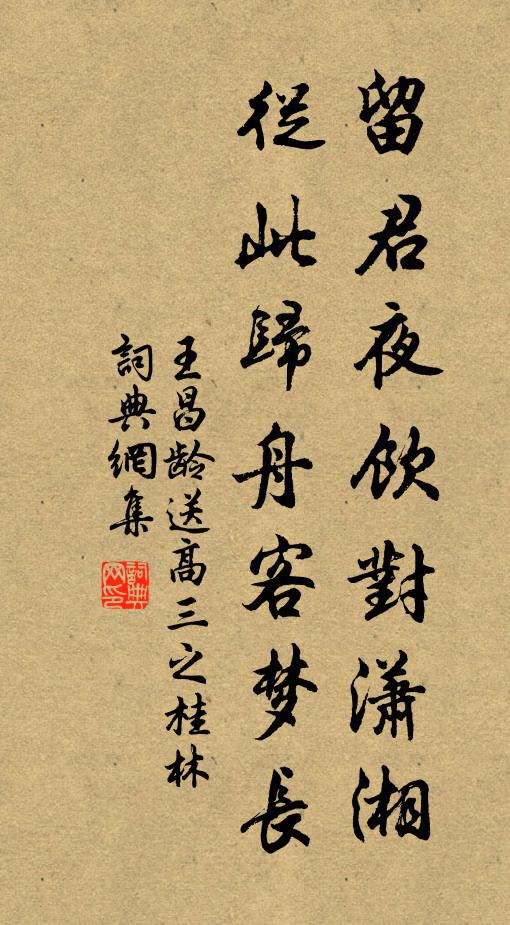 留君夜飲對瀟湘
從此歸舟客梦長
王昌龄送高三之桂林
詞典網集
詞典网印